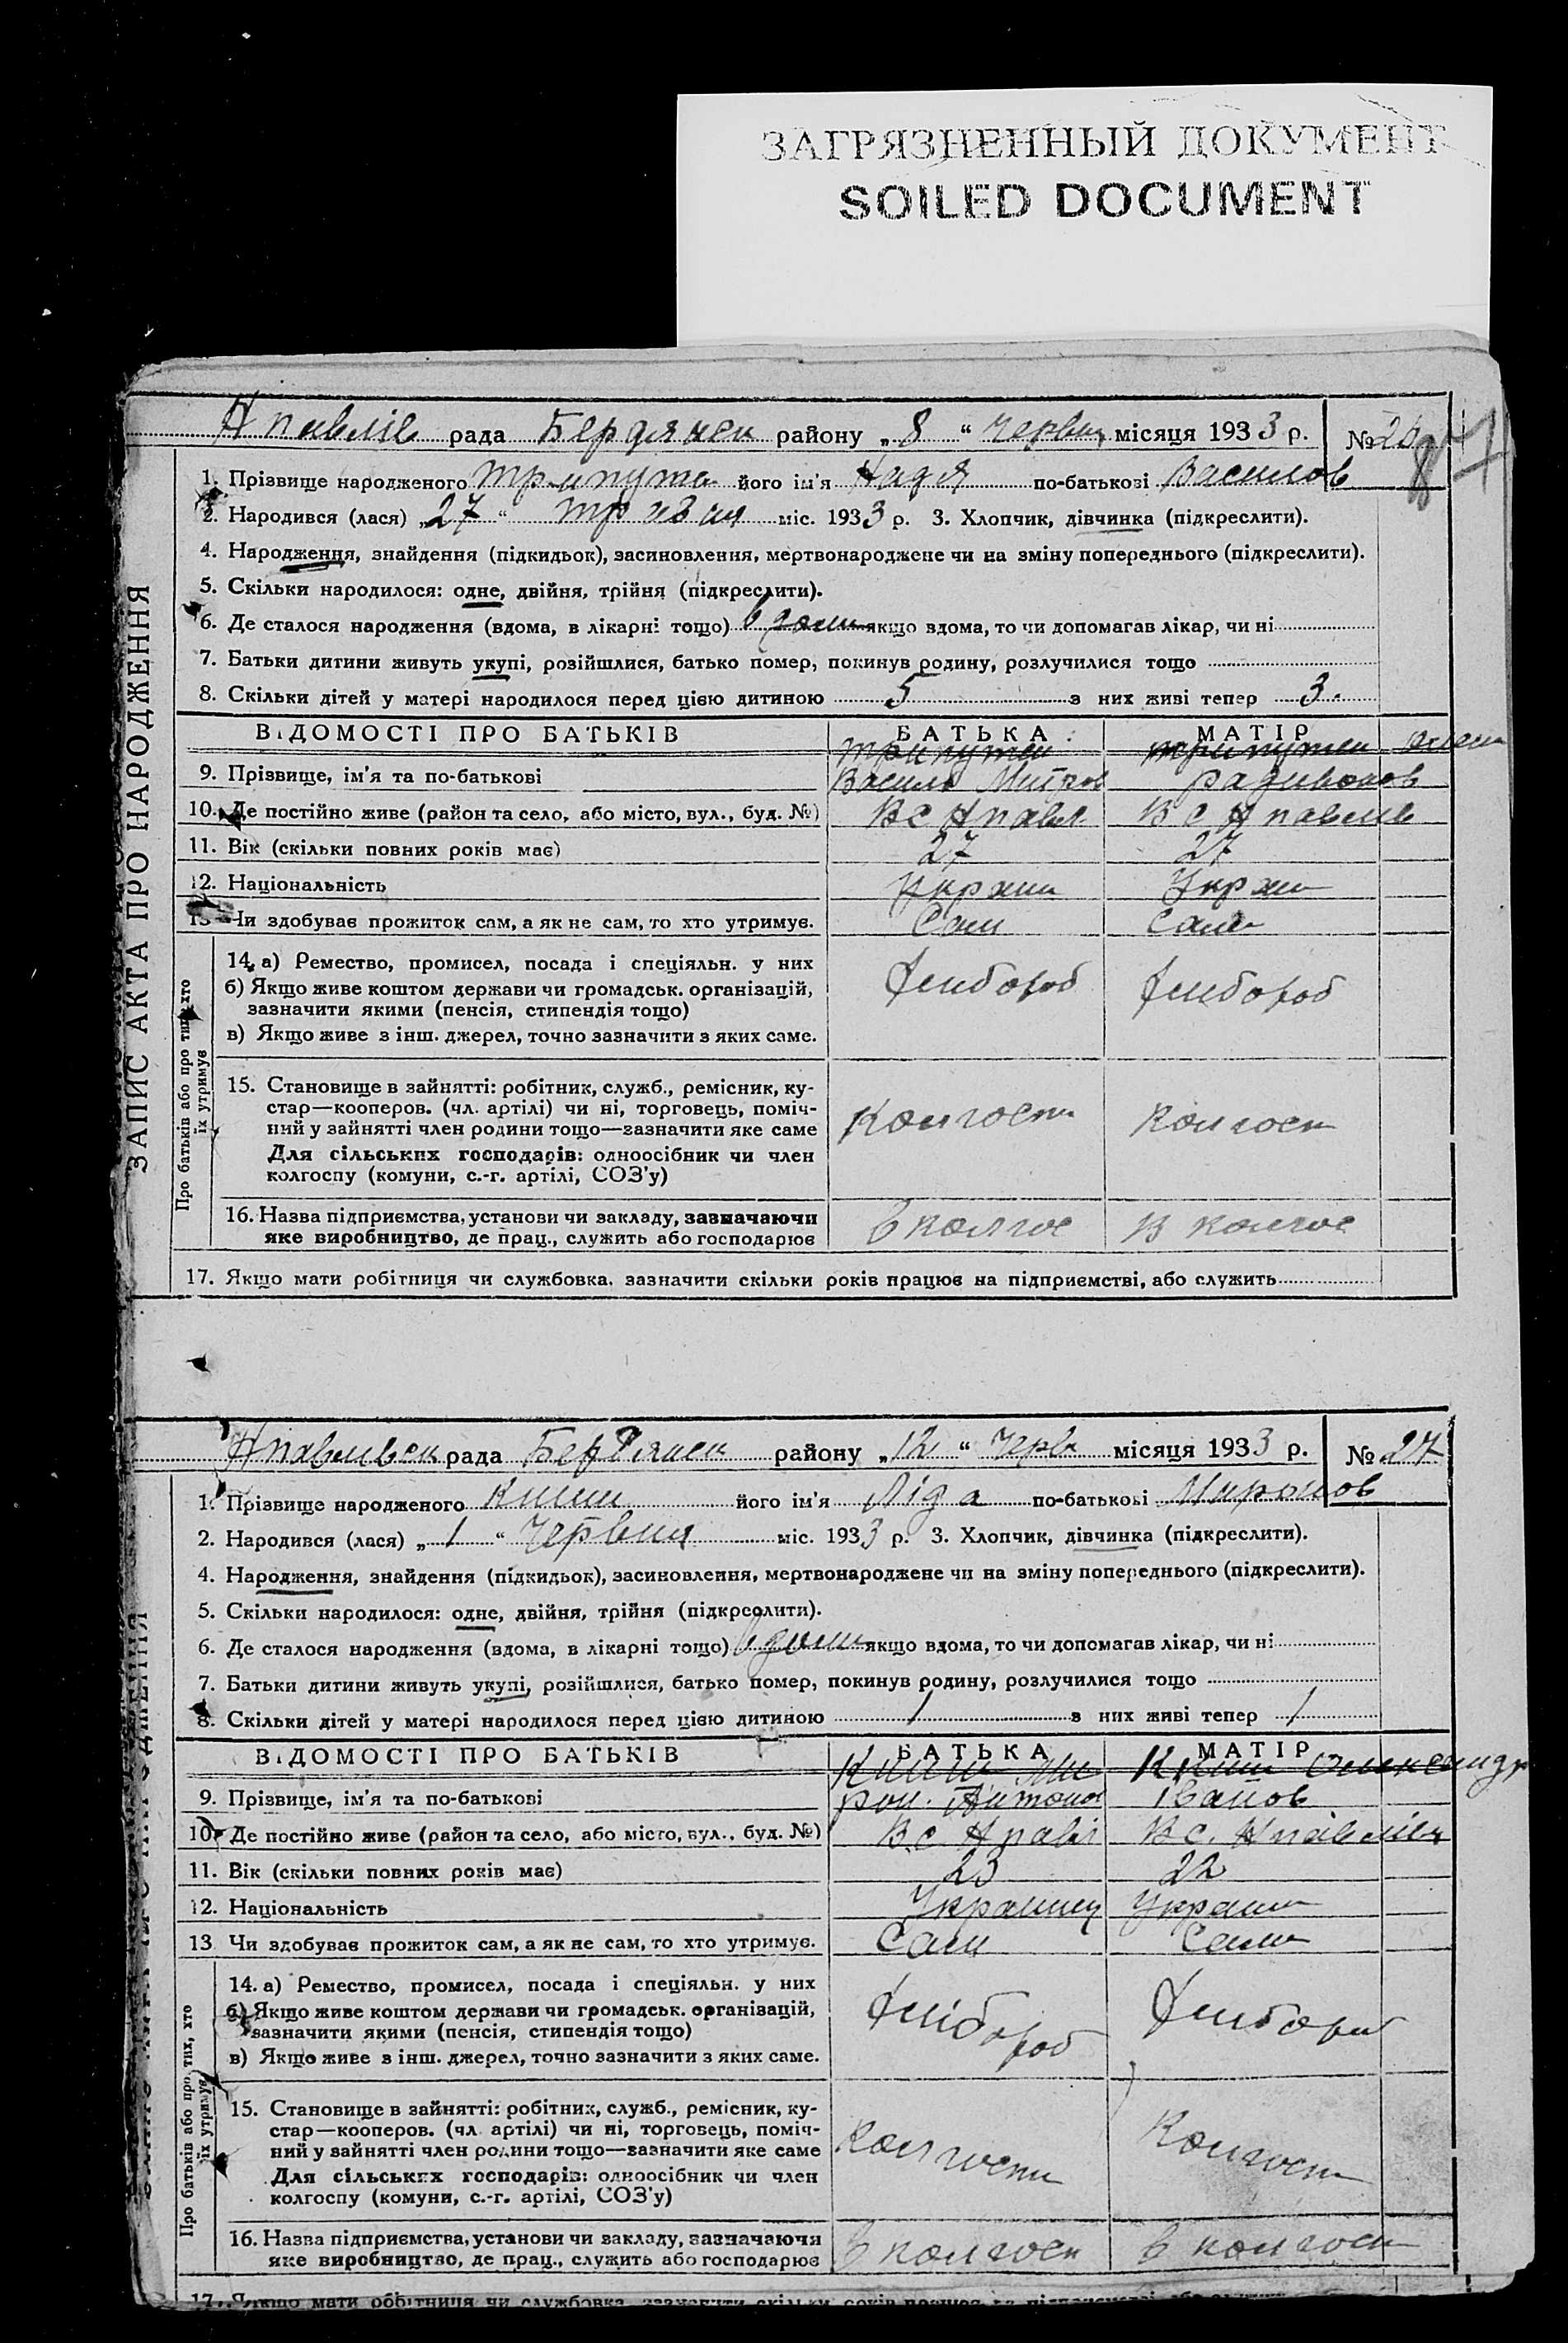 ЗАГРЯЗНЕННЫЙ ДОКУМЕНТ
SOILED DOCUMENT
ЗАПИС АКТА ПРО НАРОДЖЕННЯ
Нпавлів рада Бердянск району „8“ червня місяця 1933 р. №
1. Прізвище народженого Трипута його ім'я Надя по-батькові Василов
2. Народився (лася) „27“ травня міс. 1933 р. 3. Хлопчик, дівчинка (підкреслити).
4. Народження, знайдення (підкидьок), засиновлення, мертвонароджене чи на зміну попереднього (підкреслити).
5. Скільки народилося: одне, двійня, трійня (підкреслити).
6. Де сталося народження (вдома, в лікарні тощо) в доми якщо вдома, то чи допомагав лікар, чи ні
7. Батьки дитини живуть укупі, розійшлися, батько помер, покинув родину, розлучилися тощо
8. Скільки дітей у матері народилося перед цією дитиною 5 з них живі тепер 3.
ВІДОМОСТІ ПРО БАТЬКІВ БАТЬКА МАТІР
9. Прізвище, ім'я та по-батькові Василь Митров
10. Де постійно живе (район та село, або місто, вул., буд. №) Вс Нпавл Вс Нпавлів
11. Вік (скільки повних років має) 27 27
12. Національність Украин Украин
13 Чи здобуває прожиток сам, а як не сам, то хто утримує. Сам Сама
Про батьків або про тих, хто їх утримує
14. а) Ремество, промисел, посада і спеціяльн. у них
б) Якщо живе коштом держави чи громадськ. організацій,
зазначити якими (пенсія, стипендія тощо)
в) Якщо живе з інш. джерел, точно зазначити з яких саме.
Хлибороб Хлибороб
15. Становище в зайнятті: робітник, служб., ремісник, ку-
стар—кооперов. (чл. артілі) чи ні, торговець, поміч-
ний у зайнятті член родини тощо—зазначити яке саме
Для сільських господарів: одноосібник чи член
колгоспу (комуни, с.-г. артілі, СОЗ'у)
Колгосп Колгосп
16. Назва підприємства, установи чи закладу, зазначаючи
яке виробництво, де прац., служить або господарює
в колгос в колгос
17. Якщо мати робітниця чи службовка, зазначити скільки років працює на підприємстві, або служить
Нпавливск рада Бердянск району „12“ Черв місяця 1933 р. № 27
1. Прізвище народженого його ім'я Ліда по-батькові Миронов
2. Народився (лася) „1“ Червня міс. 1933 р. 3. Хлопчик, дівчинка (підкреслити).
4. Народження, знайдення (підкидьок), засиновлення, мертвонароджене чи на зміну попереднього (підкреслити).
5. Скільки народилося: одне, двійня, трійня (підкреслити).
6. Де сталося народження (вдома, в лікарні тощо) в доми якщо вдома, то чи допомагав лікар, чи ні
7. Батьки дитини живуть укупі, розійшлися, батько помер, покинув родину, розлучилися тощо
8. Скільки дітей у матері народилося перед цією дитиною 1 з них живі тепер 1
ВІДОМОСТІ ПРО БАТЬКІВ БАТЬКА МАТІР
Ми Олександр
9. Прізвище, ім'я та по-батькові рон. Антонов Іванов
10. Де постійно живе (район та село, або місто, вул., буд. №) Вс Нпавл Вс. Нпавлівк
11. Вік (скільки повних років має) 23 22
12. Національність Украинец Украин
13 Чи здобуває прожиток сам, а як не сам, то хто утримує. Сам Сама
Про батьків або про тих, хто їх утримує
14. а) Ремество, промисел, посада і спеціяльн. у них
б) Якщо живе коштом держави чи громадськ. організацій,
зазначити якими (пенсія, стипендія тощо)
в) Якщо живе з інш. джерел, точно зазначити з яких саме.
Хлібороб Хлибороб
15. Становище в зайнятті: робітник, служб., ремісник, ку-
стар—кооперов. (чл. артілі) чи ні, торговець, поміч-
ний у зайнятті член родини тощо—зазначити яке саме
Для сільських господарів: одноосібник чи член
колгоспу (комуни, с.-г. артілі, СОЗ'у)
Колгосп Колгосп
16. Назва підприємства, установи чи закладу, зазначаючи
яке виробництво, де прац., служить або господарює
в колгосп в колгосп
17. Якщо мати робітниця чи службовка, зазначити скільки років працює на підприємстві, або служить